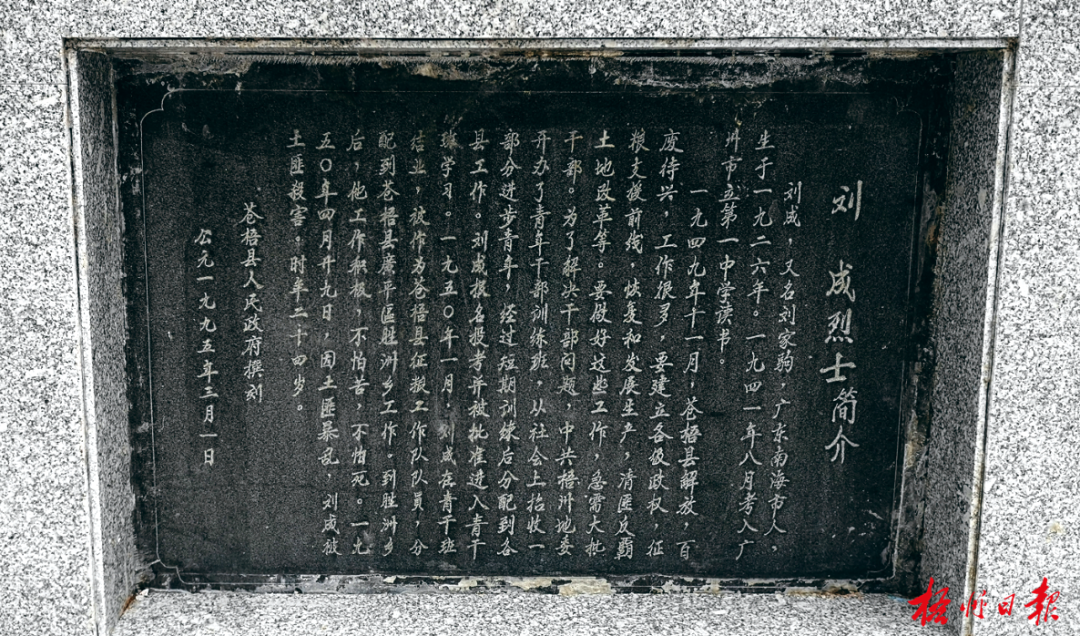 刘成烈士简介
刘成，又名刘家驹，广东南海市人，
生于一九二六年。一九四一年八月考入广
州市立第一中学读书。
一九四九年十一月，苍梧县解放，百
废待兴，工作很多，要建立各级政权，征
粮支援前线，恢复和发展生产，清匪反霸
土地改革等。要做好这些工作，急需大批
干部。为了解决干部问题，中共梧州地委
开办了青年干部训练班，从社会上招收一
部分进步青年，经过短期训练后分配到各
县工作。刘成报名投考并被批准进入青干
班学习。一九五〇年一月，刘成在青干班
结业，被作为苍梧县征粮工作队队员，分
配到苍梧县广平区胜洲乡工作。到胜洲乡
后，他工作积极，不怕苦，不怕死。一九
五〇年四月廿九日，因土匪暴乱，刘成被
土匪杀害。时年二十四岁。
苍梧县人民政府撰刻
公元一九九五年三月一日
梧州日报